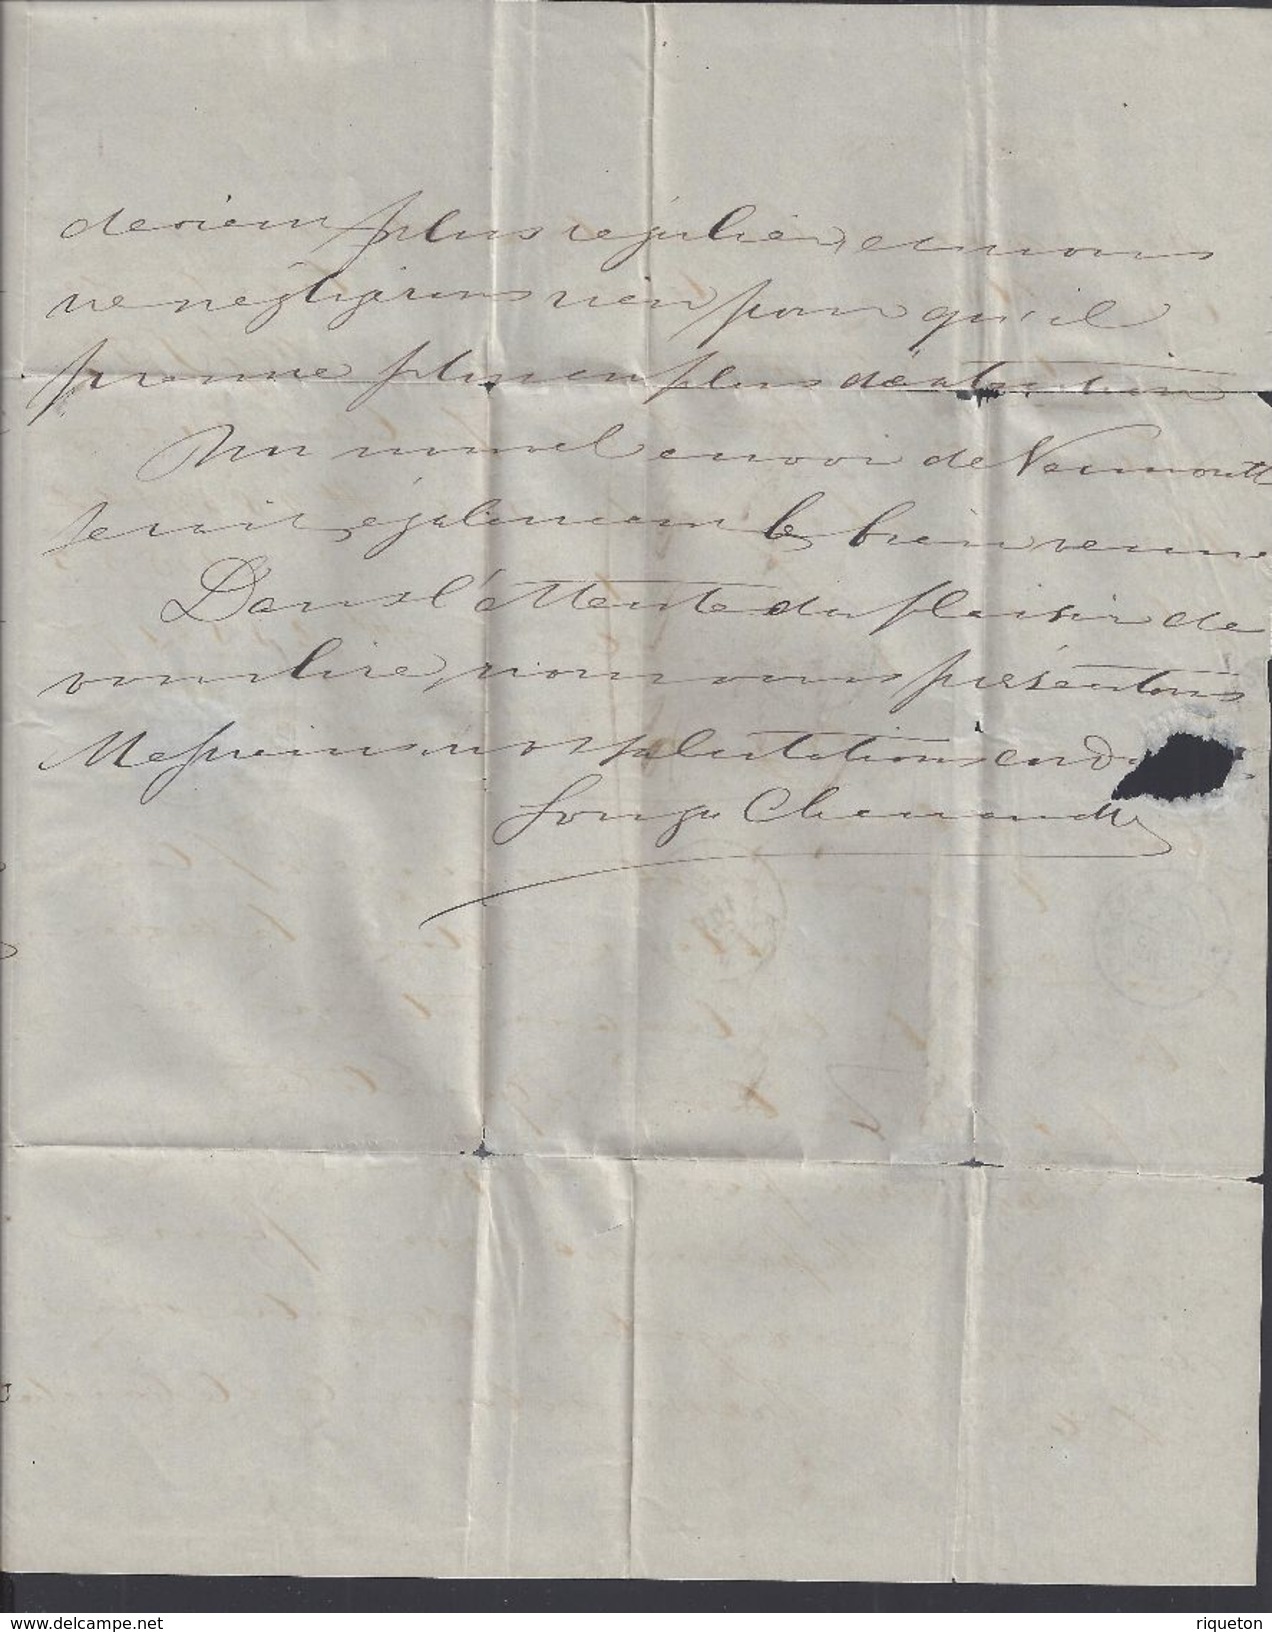 devienne plus régulier, et nous
ne négligerons rien pour qu'il
prenne plus en plus d'extention
Un nouvel envoi de Vermoutt
serait également le bienvenu
Dans l'attente du plaisir de
vous lire, nous vous présentons
Messieurs nos salutations
delcampe.net
riqueton